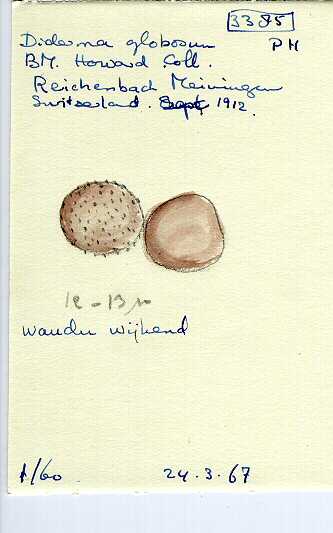 3385
PH
Diderma globosum
BM. Howard Coll.
Reichenbach Meiringen
Switserland. Sept, 1912.
12-13 µ
wanden wijkend
1/60
24.3.67